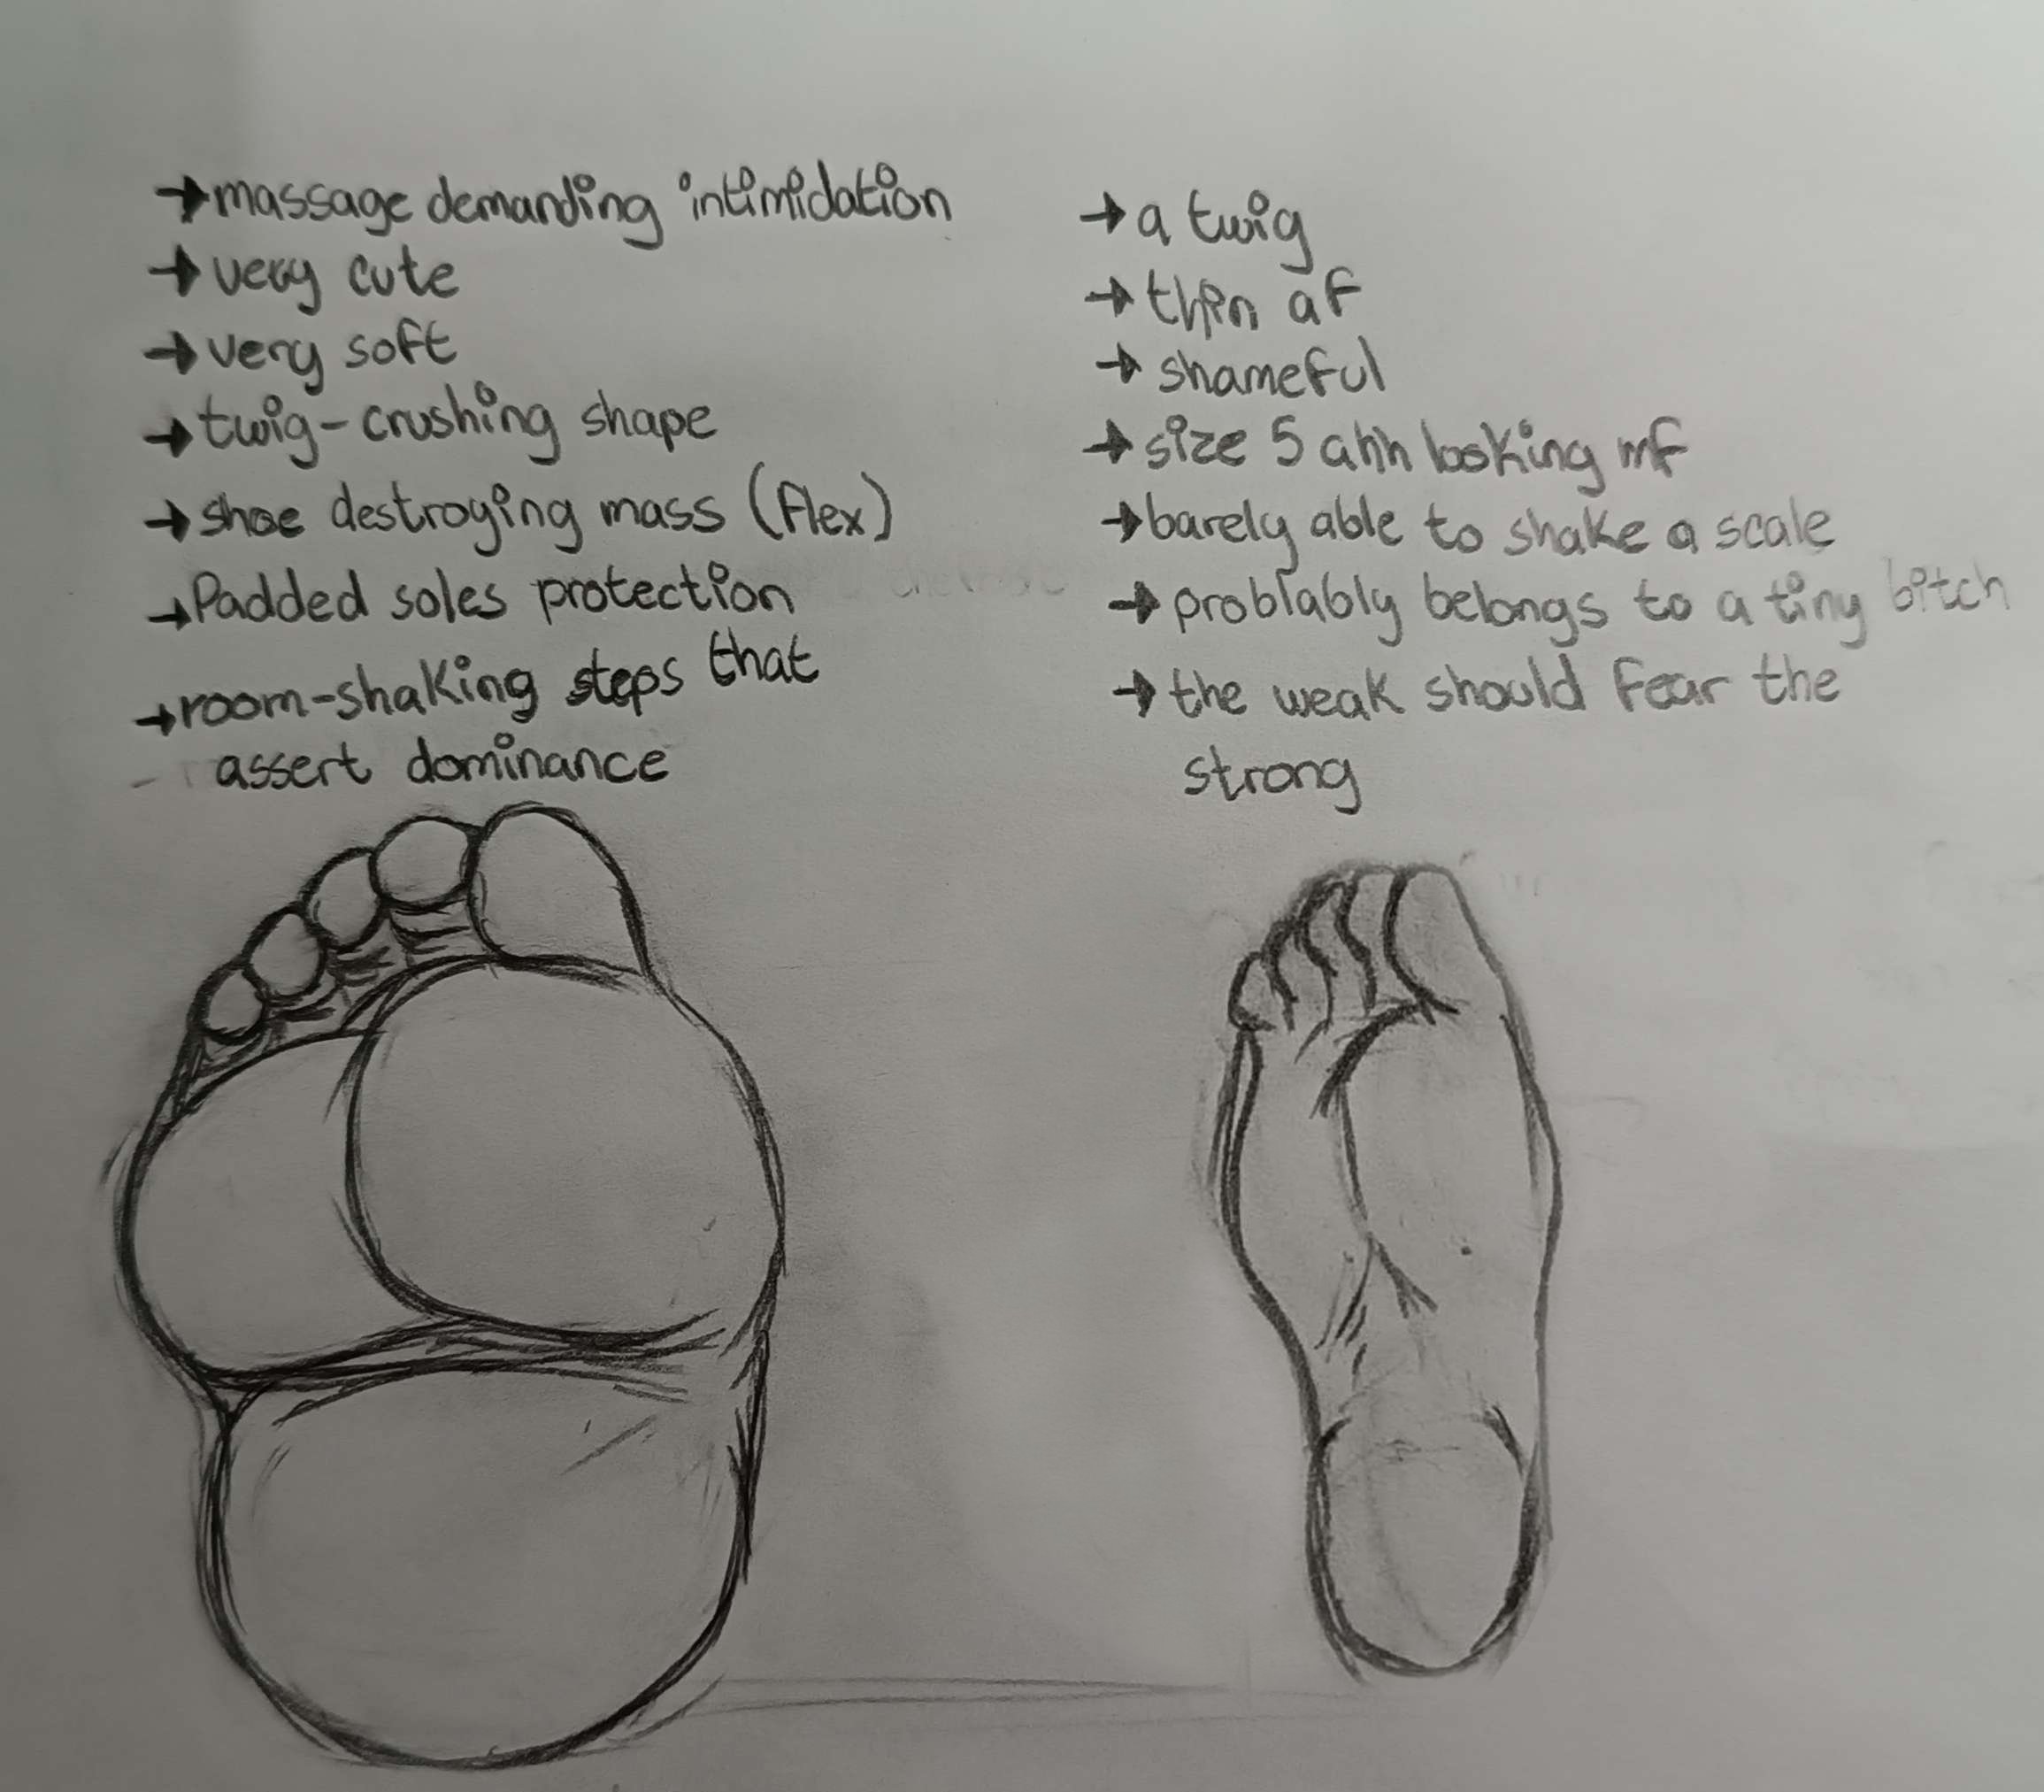 →massage demanding intimidation
→very cute
→very soft
→twig-crushing shape
→shoe destroying mass (flex)
→Padded soles protection
→room-shaking steps that
assert dominance
→a twig
→thin af
→shameful
→size 5 ahh looking mf
→barely able to shake a scale
→problably belongs to a tiny bitch
→the weak should fear the
strong